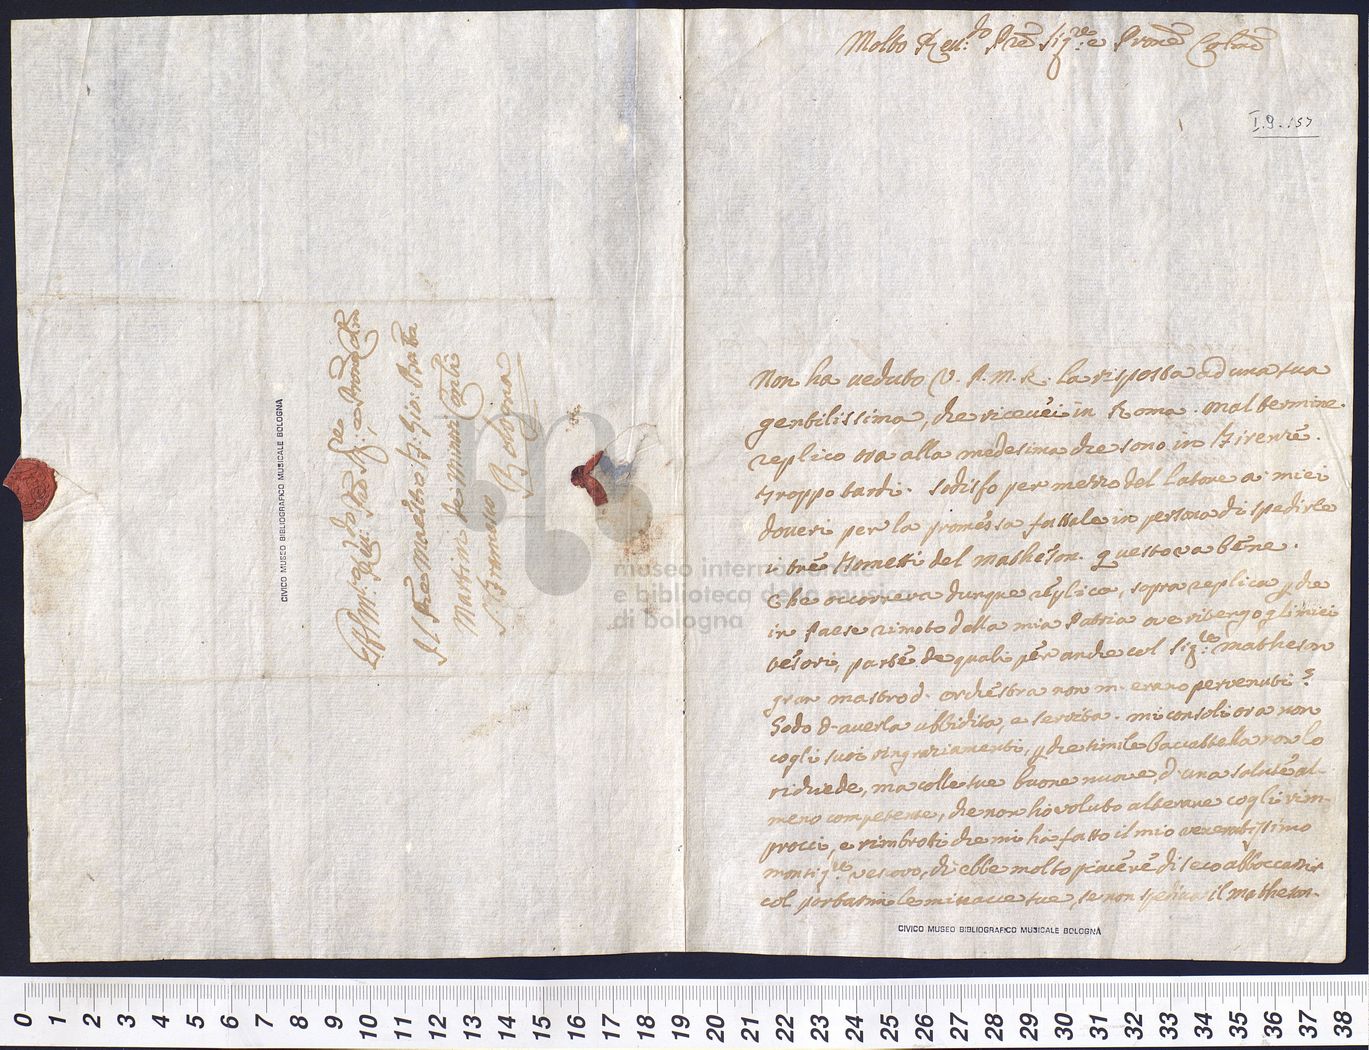 Molto Rev:do Pre Sig:re e Prone Colmo
I.9.157
Non ha veduto V. P. M. R. la risposta ad una sua
gentilissima, che ricevei in Roma. Mal termine.
replico ora alla medesima che sono in Firenze.
troppo tardi. Sodisfo per mezzo del Latore a miei
doveri per la promessa fattale in persona di spedirle
i tre Tometti del Matheson. questo va bene.
Che occorreva dunque replica, sopra replica
in Paese rimoto dalla mia Patria ove ritengo gli miei
tesori, parte de quali per anche col Sig:re Matheson
gran mastro d'orchestra non m'erano pervenuti?
Godo d'averla ubbidita, e servita. mi consoli ora non
cogli suoi ringraziamenti, che simile baccattella non lo
richiede, ma colle sue buone nuove, d'una salute al-
meno competente, che non ho voluto alterare cogli rim-
procci, e rimbroti che mi ha fatto il mio veneratissimo
Monsig:re Vescovo, ch'ebbe molto piacere di seco abboccarsi
col portarmi le minacce sue, se non spediva il Matheson.
Al Molto Rev:do Pre Sig:re e Prone Colmo
Il Pre Maestro F: Gio: Batta
Martini de Minori Conli
S. Franco Bologna
CIVICO MUSEO BIBLIOGRAFICO MUSICALE BOLOGNA
CIVICO MUSEO BIBLIOGRAFICO MUSICALE BOLOGNA
museo internazionale
e biblioteca della musica
di bologna
0 1 2 3 4 5 6 7 8 9 10 11 12 13 14 15 16 17 18 19 20 21 22 23 24 25 26 27 28 29 30 31 32 33 34 35 36 37 38